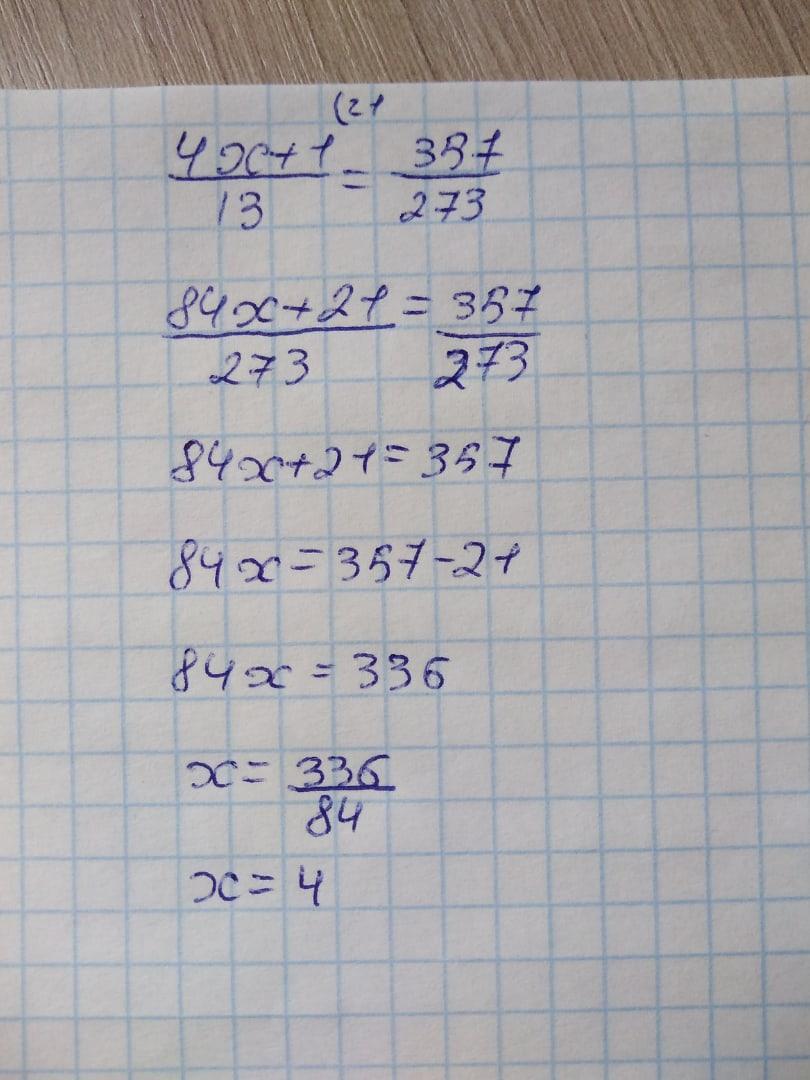 (21
4x+1/13 = 357/273
84x+21/273 = 357/273
84x+21=357
84x=357-21
84x=336
x=336/84
x=4